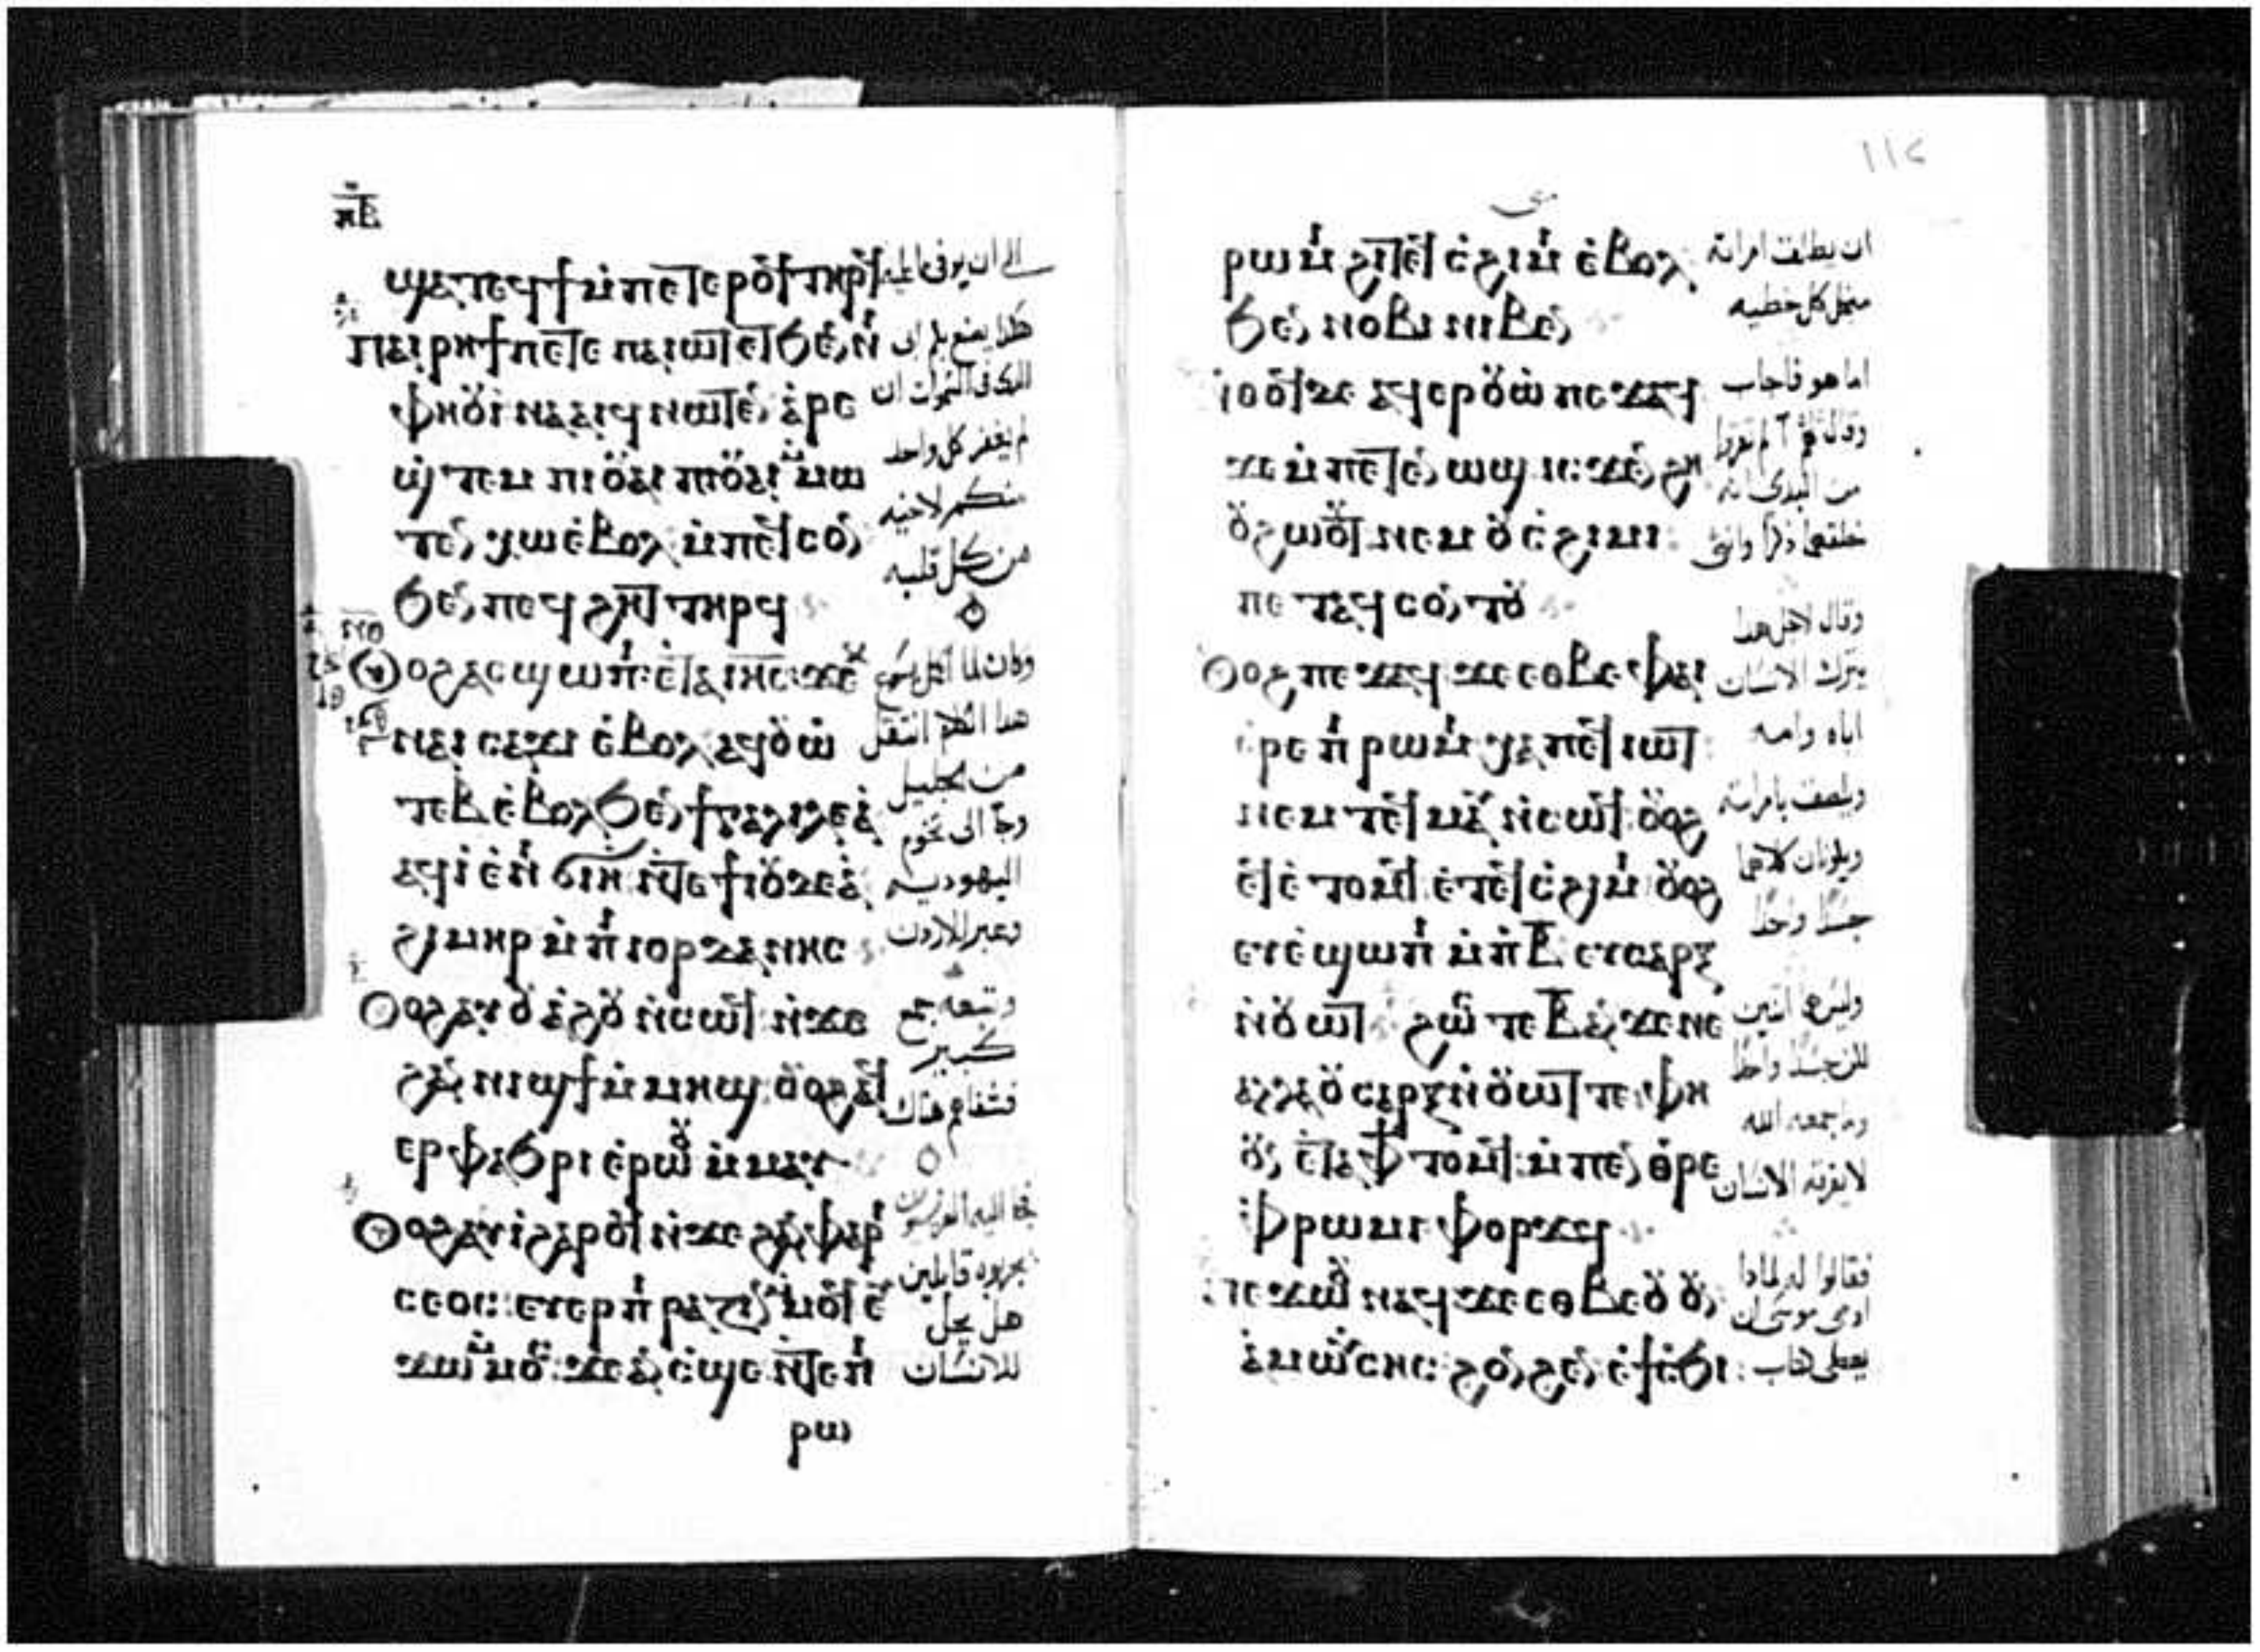 ⲙ︦ⲃ︦
ϣⲁⲧⲉϥϯ ⲙ̀ⲡⲉⲧⲉⲣⲟϥ ⲧⲏⲣϥ
ⲡⲁⲓⲣⲏϯ ⲡⲉⲧⲉ ⲡⲁⲓⲱⲧ ⲉⲧϧⲉⲛ ⲛⲓ
ⲫⲏⲟⲩⲓ ⲛⲁⲁⲓϥ ⲛⲱⲧⲉⲛ ⲁⲣⲉ
ϣⲧⲉⲙ ⲡⲓⲟⲩⲁⲓ ⲡⲓⲟⲩⲁⲓ ⲙ̀ⲙⲱ
ⲧⲉⲛ ⲭⲱ ⲉ̀ⲃⲟⲗ ⲙ̀ⲡⲉϥⲥⲟⲛ
ϧⲉⲛ ⲡⲉϥϩⲏⲧ ⲧⲏⲣϥ
ⲟⲩⲟϩ ⲁⲥϣⲱⲡⲓ ⲉⲧⲁ ⲓⲏⲥ ϫⲉⲕ
ⲛⲁⲓ ⲥⲁϫⲓ ⲉ̀ⲃⲟⲗ ⲁϥⲟⲩⲱ̀
ⲧⲉⲃ ⲉ̀ⲃⲟⲗ ϧⲉⲛ ϯⲅⲁⲗⲓⲗⲉⲁ̀
ⲁϥⲓ̀ ⲉ̀ⲛⲓ ϭⲓⲏ ⲛ̀ⲧⲉ ϯⲓⲟⲩⲇⲉⲁ̀
ϩⲓⲙⲏⲣ ⲙ̀ⲡⲓⲓⲟⲣⲇⲁⲛⲏⲥ
ⲟⲩⲟϩ ⲁⲩⲟⲩⲁϩⲟⲩ ⲛ̀ⲥⲱϥ ⲛ̀ϫⲉ
ϩⲁⲛ ⲛⲓϣϯ ⲙ̀ⲙⲏϣ ⲟⲩⲟϩ ⲁϥ
ⲉⲣⲫⲁϧⲣⲓ ⲉ̀ⲣⲱⲟⲩ ⲙ̀ⲙⲁⲩ
ⲟⲩⲟϩ ⲁⲩⲓ̀ ϩⲁⲣⲟϥ ⲛ̀ϫⲉ ϩⲁⲛ ⲫⲁⲣⲓ
ⲥⲉⲟⲥ ⲉⲩⲉⲣⲡⲓⲣⲁⲍⲓⲛ ⲙ̀ⲙⲟϥ ⲉⲩ
ϫⲱ ⲙ̀ⲙⲟⲥ ϫⲉ ⲁⲛ ⲥ̀ϣⲉ ⲛ̀ⲧⲉ ⲡⲓ
ⲣⲱ
الى ان يوفي
هكذا يصنع بكم ابي
الذي في السموات ان
لم يغفر كل واحد
منكم لاخيه
من كل قلبه
وكان لما اكمل يسوع
هذا الكلام انتقل
من الجليل
وجا الى تخوم
اليهودية
وعبر الاردن
وتبعه جمع
كبير
فشفاهم هناك
فجا اليه الفريسيون
يجربوه قايلين
هل يحل
للانسان
١١٤
متى
ⲣⲱⲙⲓ ϩⲓⲧⲉϥ ⲥ̀ϩⲓⲙⲓ ⲉ̀ⲃⲟⲗ
ϧⲉⲛ ⲛⲟⲃⲓ ⲛⲓⲃⲉⲛ
ⲛ̀ⲑⲟϥ ⲇⲉ ⲁϥⲉⲣⲟⲩⲱ̀ ⲡⲉϫⲁϥ
ϫⲉ ⲙ̀ⲡⲉⲧⲉⲛ ⲱϣ ⲓⲥϫⲉⲛ ϩⲏ
ⲟⲩϩⲱⲟⲩⲧ ⲛⲉⲙ ⲟⲩⲥ̀ϩⲓⲙⲓ
ⲡⲉⲧⲁϥⲥⲟⲛⲧⲟⲩ
ⲟⲩⲟϩ ⲡⲉϫⲁϥ ϫⲉ ⲉⲑⲃⲉ ⲫⲁⲓ
ⲉⲣⲉ ⲡⲓⲣⲱⲙⲓ ⲭⲁ ⲡⲉϥⲓⲱⲧ
ⲛⲉⲙ ⲧⲉϥⲙⲁⲩ ⲛ̀ⲥⲱϥ ⲟⲩⲟϩ
ⲉϥⲉ̀ⲧⲟⲙϥ ⲉ̀ⲧⲉϥⲥ̀ϩⲓⲙⲓ ⲟⲩⲟϩ
ⲉⲩⲉ̀ϣⲱⲡⲓ ⲙ̀ⲡⲃ︦ ⲉⲩⲥⲁⲣⲝ
ⲛ̀ⲟⲩⲱⲧ ϩⲱⲥⲧⲉ ⲃ︦ ⲁⲛ ϫⲉ ⲛⲉ
ⲁⲗⲗⲁ ⲟⲩⲥⲁⲣⲝ ⲛ̀ⲟⲩⲱⲧ ⲧⲉ ⲫⲏ
ⲟⲩⲛ ⲉⲧⲁ ⲫϯ ⲧⲟⲙϥ ⲙ̀ⲡⲉⲛⲑⲣⲉ
ⲫⲣⲱⲙⲓ ⲫⲟⲣϫϥ
ⲡⲉϫⲱⲟⲩ ⲛⲁϥ ϫⲉ ⲉⲑⲃⲉ ⲟⲩ ⲟⲩⲛ
ⲁ̀ ⲙⲱⲩⲥⲏⲥ ϩⲟⲛϩⲉⲛ ⲉ̀ϯ
ان يطلق امراته
من اجل كل خطيه
اما هو فاجاب
وقال لهم اما قراتم
من البدي
خلقهما ذكرا وانثى
وقال لاجل هذا
يترك الانسان
اباه وامه
ويلصق بامراته
ويكونان كلاهما
جسدًا واحدًا
وليس هما اثنين
لكن جسدًا واحدًا
وما جمعه الله
لا يفرقه الانسان
فقالوا له لماذا
اوصى موسى ان
يعطى كتاب